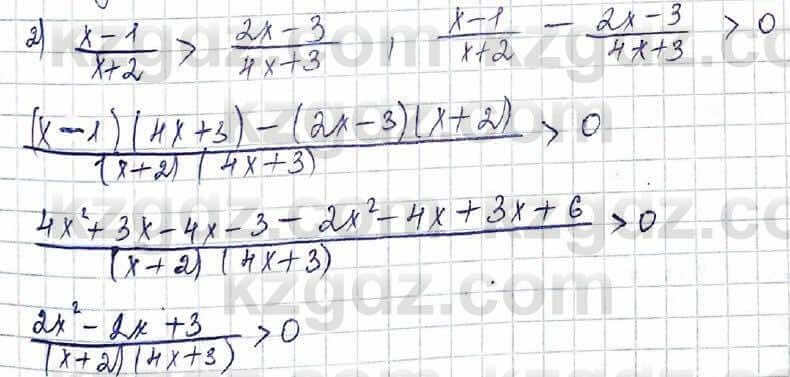 2) (x-1)/(x+2) > (2x-3)/(4x+3) , (x-1)/(x+2) - (2x-3)/(4x+3) > 0
((x-1)(4x+3)-(2x-3)(x+2))/((x+2)(4x+3)) > 0
(4x²+3x-4x-3-2x²-4x+3x+6)/((x+2)(4x+3)) > 0
(2x²-2x+3)/((x+2)(4x+3)) > 0
kzgdz.com